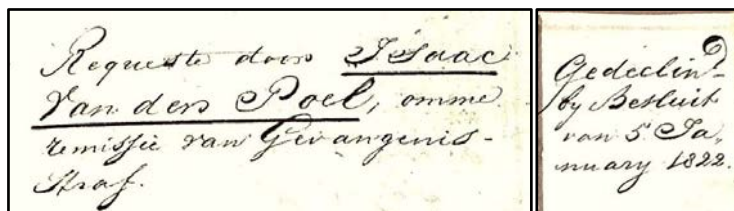 Requeste door Isaac
van den Poel, omme
remissie van Gevangenis-
straf.
Gedeclind
by Besluit
van 5 Ja,
nuary 1822.